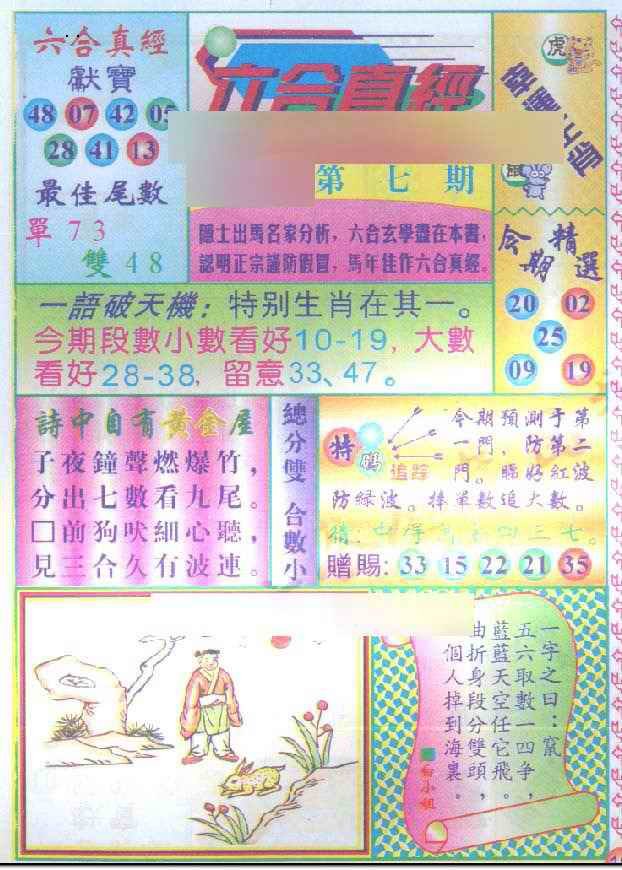 六合真經
獻寶
48 07 42 05
28 41 13
最佳尾數
單 7 3
雙 4 8
六合真經
第七期
隱士出馬名家分析，六合玄學盡在本書，
認明正宗謹防假冒，馬年佳作六合真經。
虎
鼠
今期精選
20 02
25
09 19
一語破天機：特别生肖在其一。
今期段數小數看好10-19，大數
看好28-38，留意33、47。
詩中自有黃金屋
子夜鐘聲燃爆竹，
分出七數看九尾。
□前狗吠細心聽，
見三合久有波連。
總分雙 合數小
特
碼
追踪
今期預測于第
一門，防第二
門。睇好紅波
防緑波。捧單數追大數。
四三七。
贈賜：33 15 22 21 35
一字之曰：竄
五六取數一四爭，
藍藍天空任它飛。
曲折身段分雙頭，
個人掉到海裏。
白小姐